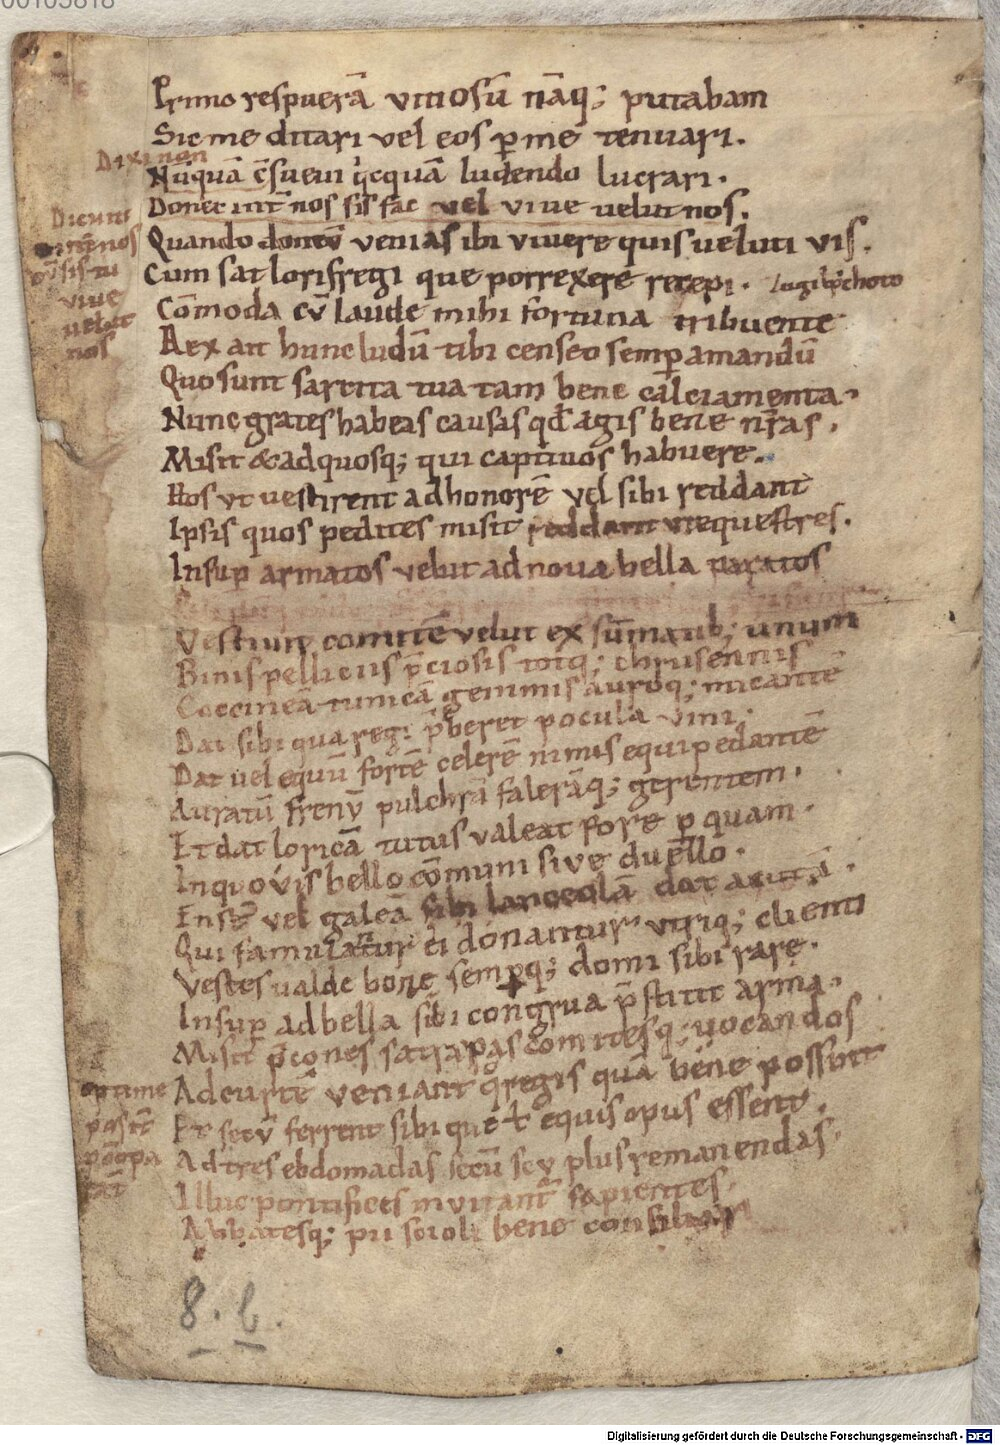 00103818
Primo respuerā vitiosū nāq; putabam
Sic me ditari vel eos p̄ me tenuari.
Dixi non
Nūquā c̄suevi q̇cquā ludendo lucrari.
Donec int̄ nos sis fac vel vive velut nos.
Dicunt int̄ nos sis tu vive velut nos
Quando venias ibi vivere quis veluti vis.
Cum sat lorifregi que porrexere recepi.
Cōmoda cū laude mihi fortuna tribuente
Rex ait hunc ludū tibi censeo semp̄ amandū
Quo sunt sartita tua tam bene calciamenta.
Nunc grates habeas causas qd̄ agis bene nr̄as.
Misit & ad quosq; qui captivos habuere.
Hos ut vestirent ad honorē vel sibi reddant
Ipsis quos pedites misit reddant ut equestres.
Insup̄ armatos velut ad nova bella paratos
Vestiunt comitē velut ex sūmatib; unum
Binis pelliciis p̄ciosis totq; chrusennis
Coccineā tunicā gemmis auroq; micantē
Dat sibi qua regi p̄beret pocula vini.
Dat vel equū fortē celerē nimis equipedantē
Auratū frenū pulchrā falerāq; gerentem.
Et dat loricā tutus valeat fore p̄ quam.
In quovis bello cōmuni sive duello.
Enses vel galeā sibi lanceolā dat acutā.
Qui famulantur ei donantur utriq; clienti
Vestes valde bone semp̄q; domi sibi rare.
Insup̄ ad bella sibi congrua p̄stitit arma.
Misit p̄cones satrapas comitesq; vocandos
Ad curtē veniant q̇ regis quā bene possint
optime
Et secū ferrent sibi que t̄ equis opus essent.
Ad tres ebdomadas secū seu plus remanendas.
Illuc pontifices invitant̄ sapientes.
Abbatesq; pii scioli bene
8. b.
Digitalisierung gefördert durch die Deutsche Forschungsgemeinschaft - DFG